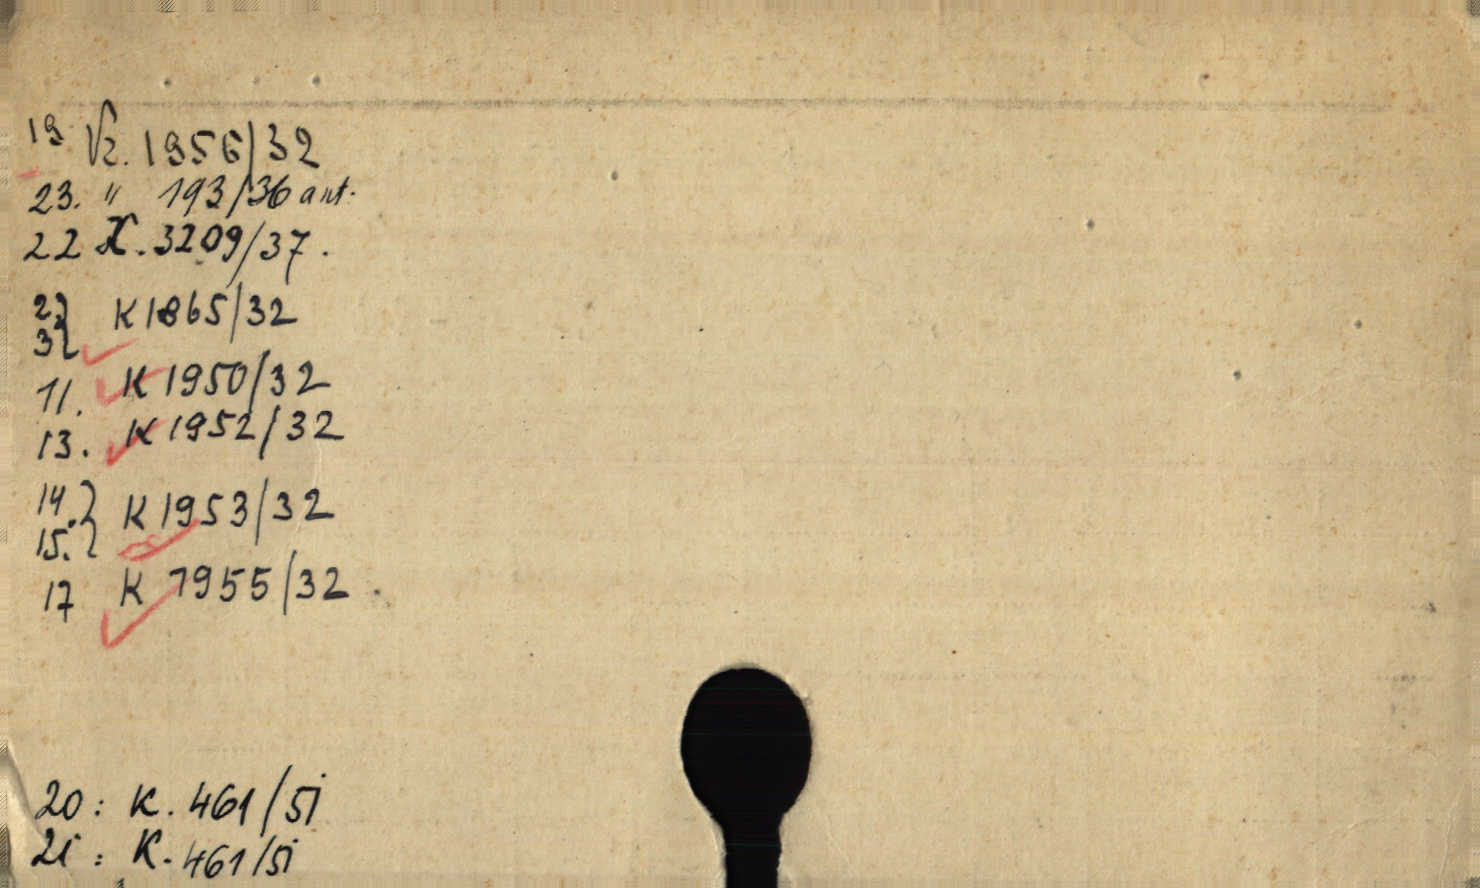 19 Vz. 1956/32
23. " 193/36 ant.
22 K. 3209/37.
2.}
3} K 1865/32
11. K 1950/32
13. K 1952/32
14.} K 1953/32
15.}
17 K 1955/32.
20: K. 461/51
21: K. 461/51